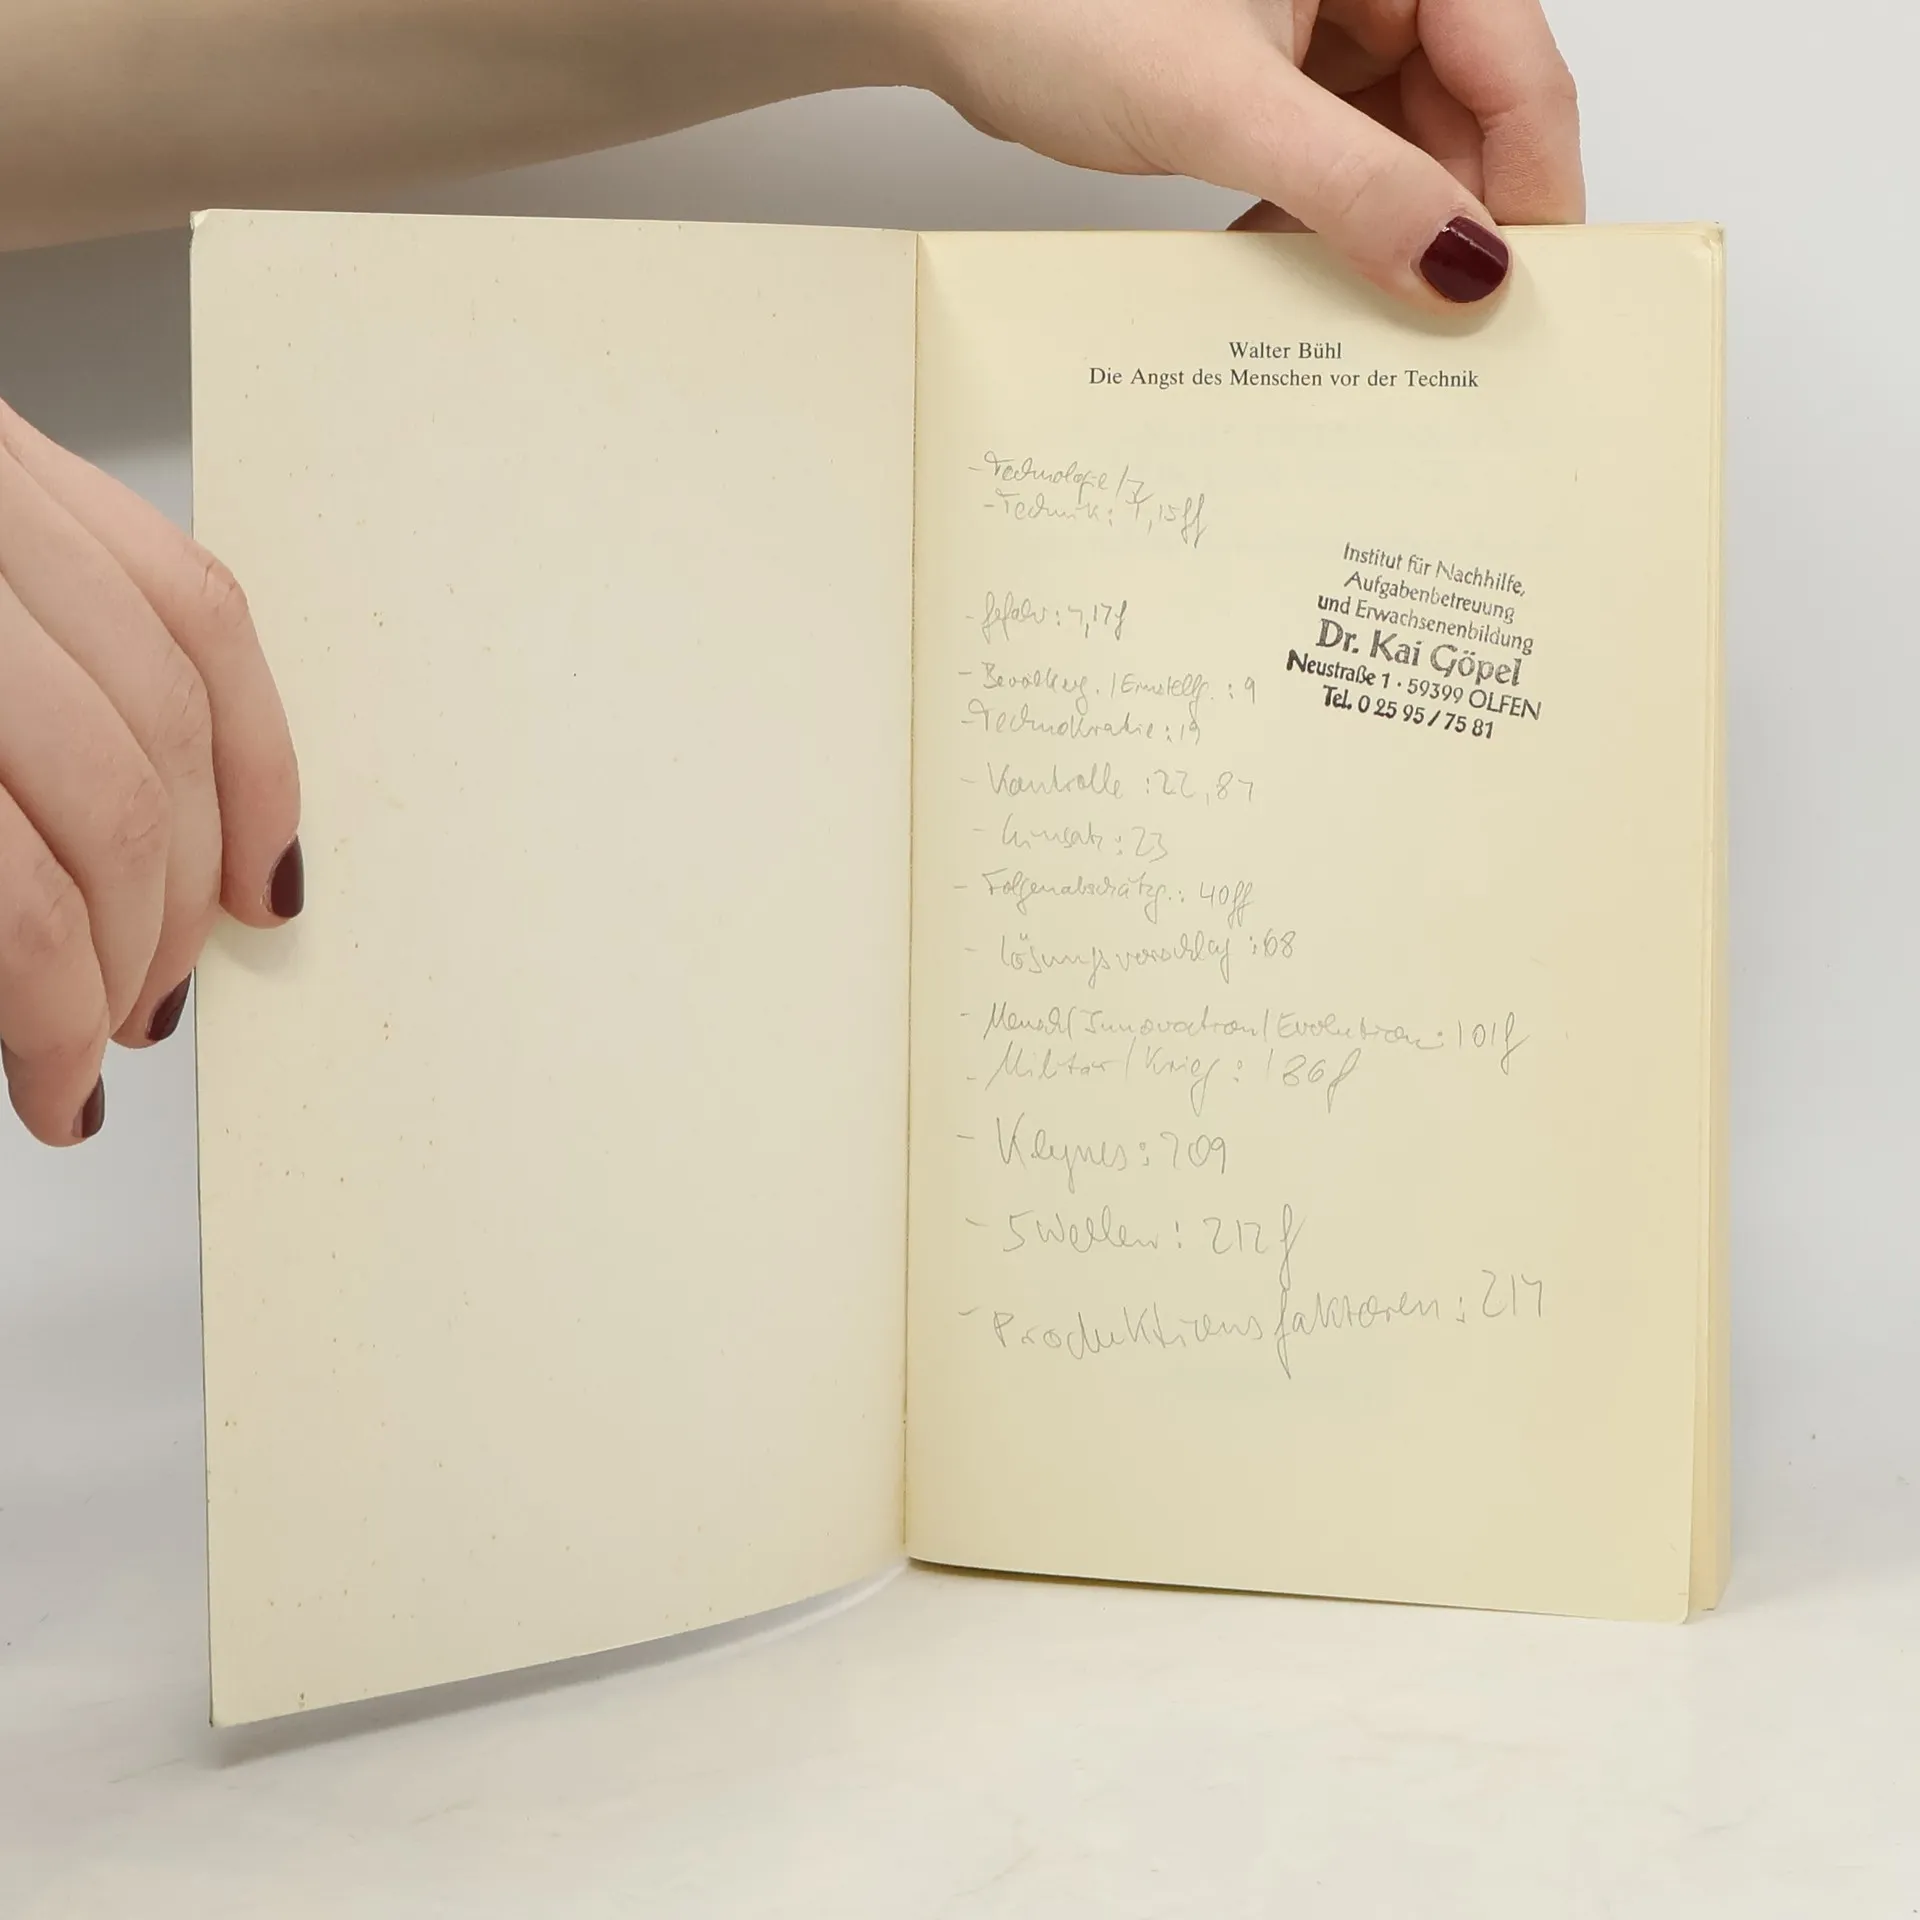 Walter Bühl
Die Angst des Menschen vor der Technik
- Technologie /
- Technik: 7, 15ff
Institut für Nachhilfe,
Aufgabenbetreuung
und Erwachsenenbildung
Dr. Kai Göpel
Neustraße 1 · 59399 OLFEN
Tel. 0 25 95 / 75 81
- Gefahr: 7, 17f
- Bevölkerg. / Einstellg. : 9
- Technokratie : 19
- Kontrolle : 22, 87
- : 23
- Folgenabschätzg. : 40ff
- Lösungsvorschlag : 68
- Mensch / Innovation / Evolution : 101f
- Militär / Krieg : 186f
- Keynes : 209
- 5 Wellen : 212f
- Produktionsfaktoren : 217